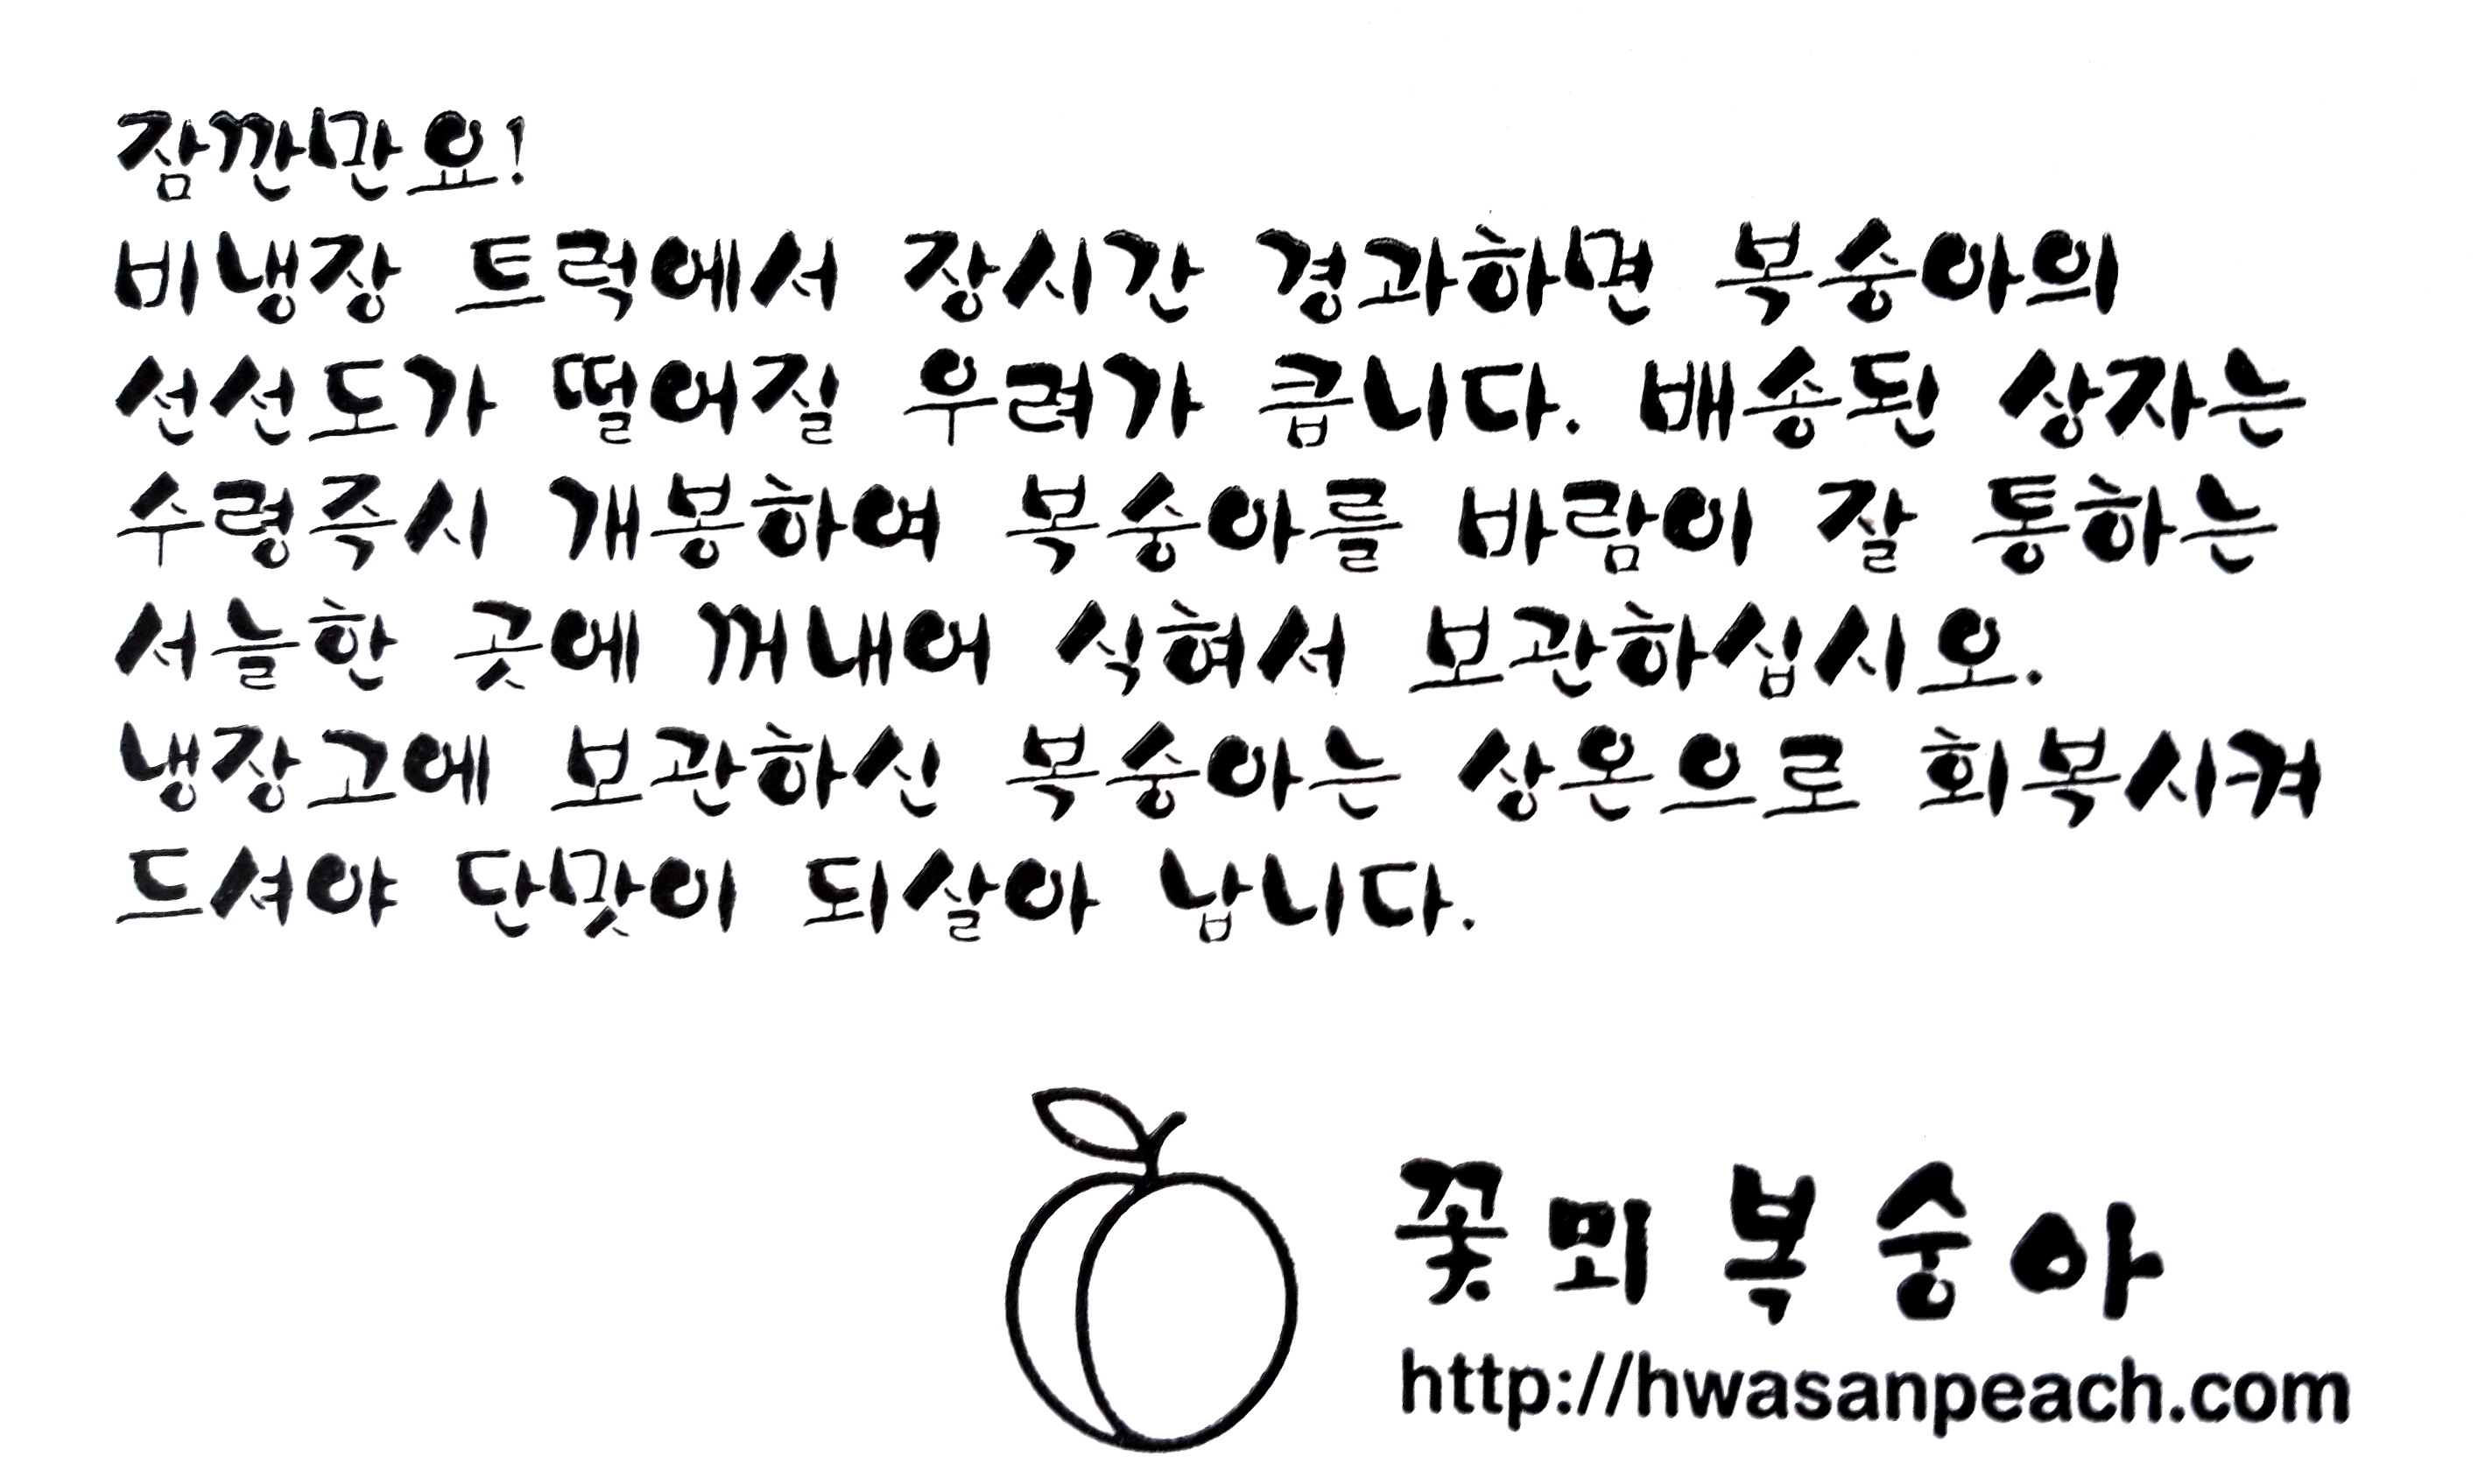 잠깐만요!
비냉장 트럭에서 장시간 경과하면 복숭아의
선선도가 떨어질 우려가 큽니다. 배송된 상자는
수령즉시 개봉하여 복숭아를 바람이 잘 통하는
서늘한 곳에 꺼내어 식혀서 보관하십시오.
냉장고에 보관하신 복숭아는 상온으로 회복시켜
드셔야 단맛이 되살아 납니다.
꽃뫼 복숭아
http://hwasanpeach.com